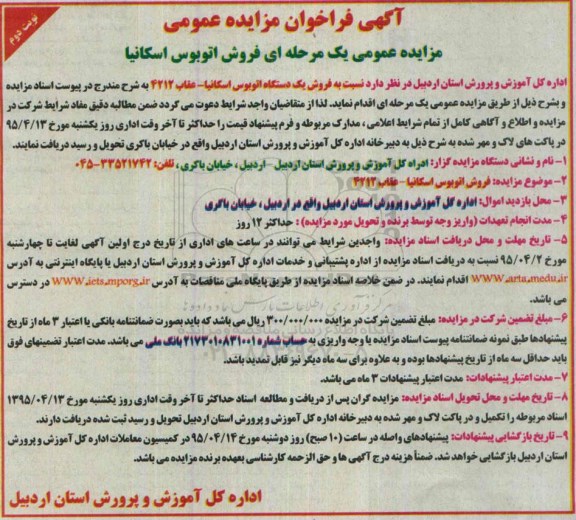 نوبت دوم
آگهی فراخوان مزایده عمومی
مزایده عمومی یک مرحله ای فروش اتوبوس اسکانیا
اداره کل آموزش و پرورش استان اردبیل در نظر دارد نسبت به فروش یک دستگاه اتوبوس اسکانیا- عقاب ۴۲۱۲ به شرح مندرج در پیوست اسناد مزایده
و بشرح ذیل از طریق مزایده عمومی یک مرحله ای اقدام نماید. لذا از متقاضیان واجد شرایط دعوت می گردد ضمن مطالبه دقیق مفاد شرایط شرکت در
مزایده و اطلاع و آگاهی کامل از تمام شرایط اعلامی ، مدارک مربوطه و فرم پیشنهاد قیمت را حداکثر تا آخر وقت اداری روز یکشنبه مورخ ۹۵/۴/۱۳
در پاکت های لاک و مهر شده به شرح ذیل به دبیرخانه اداره کل آموزش و پرورش استان اردبیل واقع در خیابان باکری تحویل و رسید دریافت نمایند.
۱- نام و نشانی دستگاه مزایده گزار: ادراه کل آموزش و پرورش استان اردبیل - اردبیل ، خیابان باکری ، تلفن: ۳۳۵۲۱۷۴۲-۰۴۵
۲-موضوع مزایده: فروش اتوبوس اسکانیا- عقاب ۴۲۱۲
۳- محل بازدید اموال: اداره کل آموزش و پرورش استان اردبیل واقع در اردبیل ، خیابان باکری
۴- مدت انجام تعهدات (واریز وجه توسط برنده و تحویل مورد مزایده) : حداکثر ۱۲ روز
۵- تاریخ مهلت و محل دریافت اسناد مزایده: واجدین شرایط می توانند در ساعت های اداری از تاریخ درج اولین آگهی لغایت تا چهارشنبه
مورخ ۹۵/۰۴/۲ نسبت به دریافت اسناد مزایده از اداره پشتیبانی و خدمات اداره کل آموزش و پرورش استان اردبیل یا پایگاه اینترنتی به آدرس
www.arta.medu.ir اقدام نمایند. در ضمن خلاصه اسناد مزایده از طریق پایگاه ملی مناقصات به آدرس www.iets.mporg.ir در دسترس
می باشد.
۶-مبلغ تضمین شرکت در مزایده: مبلغ تضمین شرکت در مزایده ۳۰۰/۰۰۰/۰۰۰ ریال می باشد که باید بصورت ضمانتنامه بانکی با اعتبار ۳ ماه از تاریخ
پیشنهادها طبق نمونه ضمانتنامه پیوست اسناد مزایده یا وجه واریزی به حساب شماره ۲۱۷۳۰۱۰۸۳۱۰۰۱ بانک ملی می باشد. مدت اعتبار تضمینهای فوق
باید حداقل سه ماه از تاریخ پیشنهادها بوده و به علاوه برای سه ماه دیگر نیز قابل تمدید باشد.
۷- مدت اعتبار پیشنهادات: مدت اعتبار پیشنهادات ۳ ماه می باشد.
۸- تاریخ مهلت و محل تحویل اسناد مزایده: مزایده گران پس از دریافت و مطالعه اسناد حداکثر تا آخر وقت اداری روز یکشنبه مورخ ۱۳۹۵/۰۴/۱۳
اسناد مربوطه را تکمیل و در پاکت لاک و مهر شده به دبیرخانه اداره کل آموزش و پرورش استان اردبیل تحویل و رسید ثبت شده دریافت دارند.
۹- تاریخ بازگشایی پیشنهادات: پیشنهادهای واصله در ساعت (۱۰ صبح) روز دوشنبه مورخ ۹۵/۰۴/۱۴ در کمیسیون معاملات اداره کل آموزش و پرورش
استان اردبیل بازگشایی خواهد شد. ضمناً هزینه درج آگهی ها و حق الزحمه کارشناسی بعهده برنده مزایده می باشد.
اداره کل آموزش و پرورش استان اردبیل